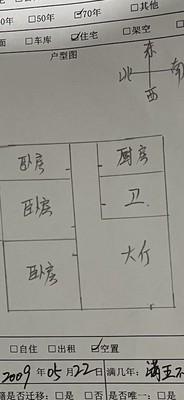 □50年 ☑70年 □其他
□车库 ☑住宅 □架空
户型图
东
北 南
西
卧房 厨房
卧房 卫
卧房 大厅
□自住 □出租 ☑空置
2009 年 05 月 22 日 满几年: 满五
是否迁移: □是 □否 是否唯一: □是